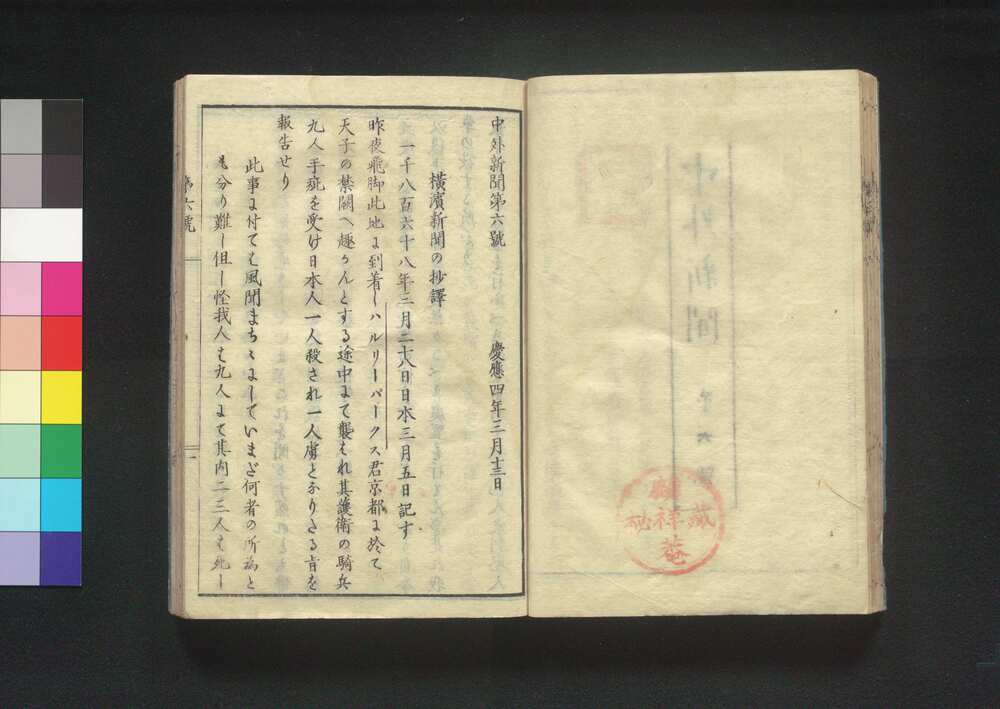 中外新聞第六號　慶應四年三月十三日
横濱新聞の抄譯
一千八百六十八年三月二十八日日本三月五日記す
昨夜飛脚此地に到着しハルリーパークス君京都に於て
天子の禁闕へ趣かんとする途中にて襲はれ其護衛の騎兵
九人手疵を受け日本人一人殺され一人虜となりたる旨を
報告せり
此事に付ても風聞まち〳〵にしていまだ何者の所為と
も分り難し但し怪我人も九人にて其内二三人も死し
第六號
一
中外新聞
第六號